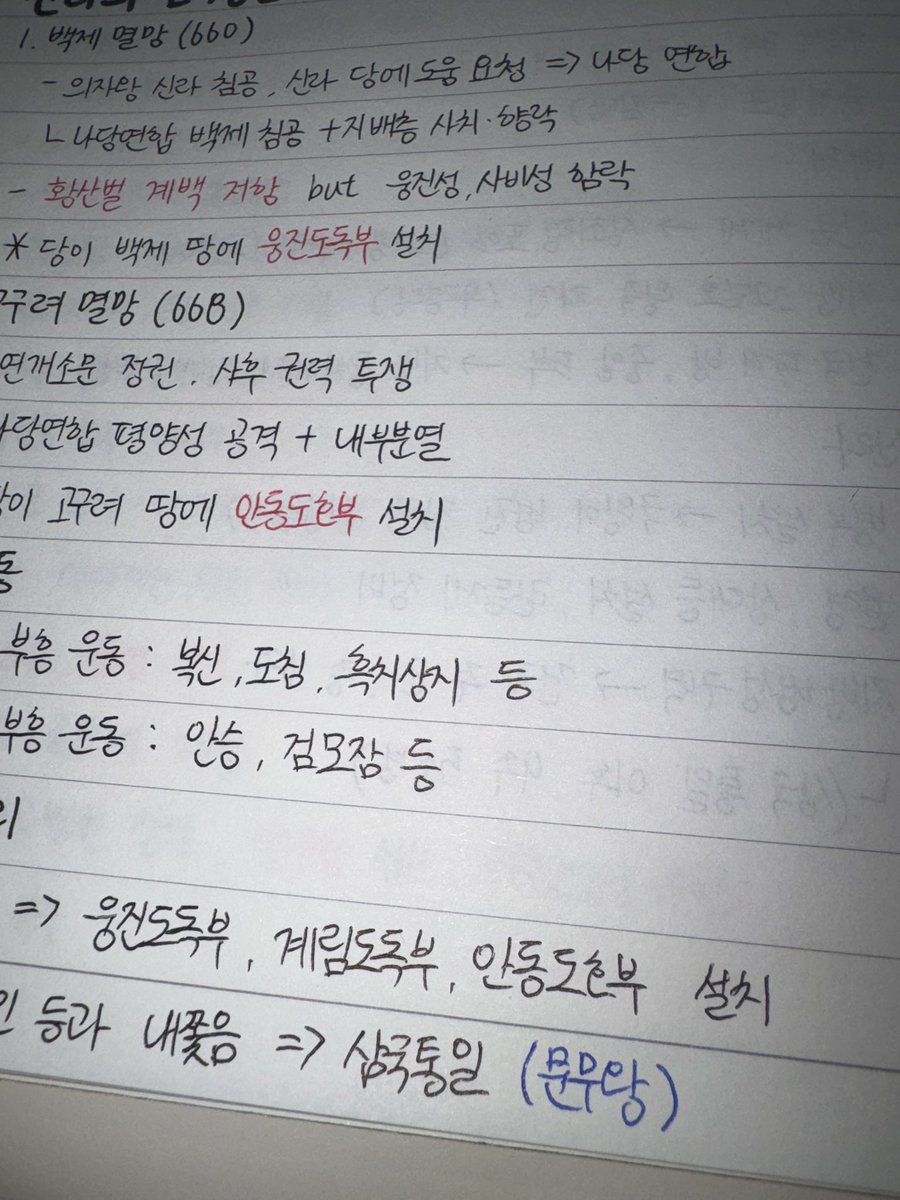 1. 백제 멸망 (660)
- 의자왕 신라 침공, 신라 당에 도움 요청 => 나당 연합
ㄴ 나당연합 백제 침공 + 지배층 사치·향락
- 황산벌 계백 저항 but 웅진성, 사비성 함락
* 당이 백제 땅에 웅진도독부 설치
구려 멸망 (668)
연개소문 정권. 사후 권력 투쟁
나당연합 평양성 공격 + 내부분열
당이 고구려 땅에 안동도호부 설치
동
부흥 운동 : 복신, 도침, 흑치상지 등
부흥 운동 : 안승, 검모잠 등
=> 웅진도독부, 계림도독부, 안동도호부 설치
등과 내쫓음 => 삼국통일 (문무왕)